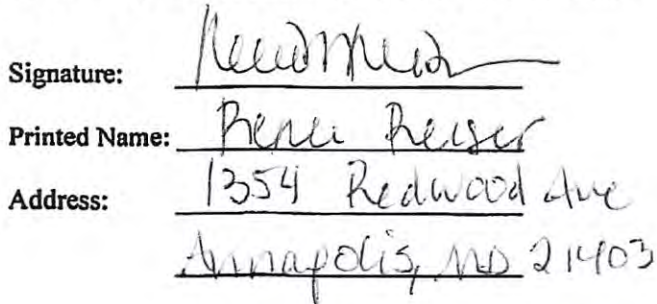 Signature:
Printed Name: Renee Reiser
Address: 1354 Redwood Ave
Annapolis, MD 21403